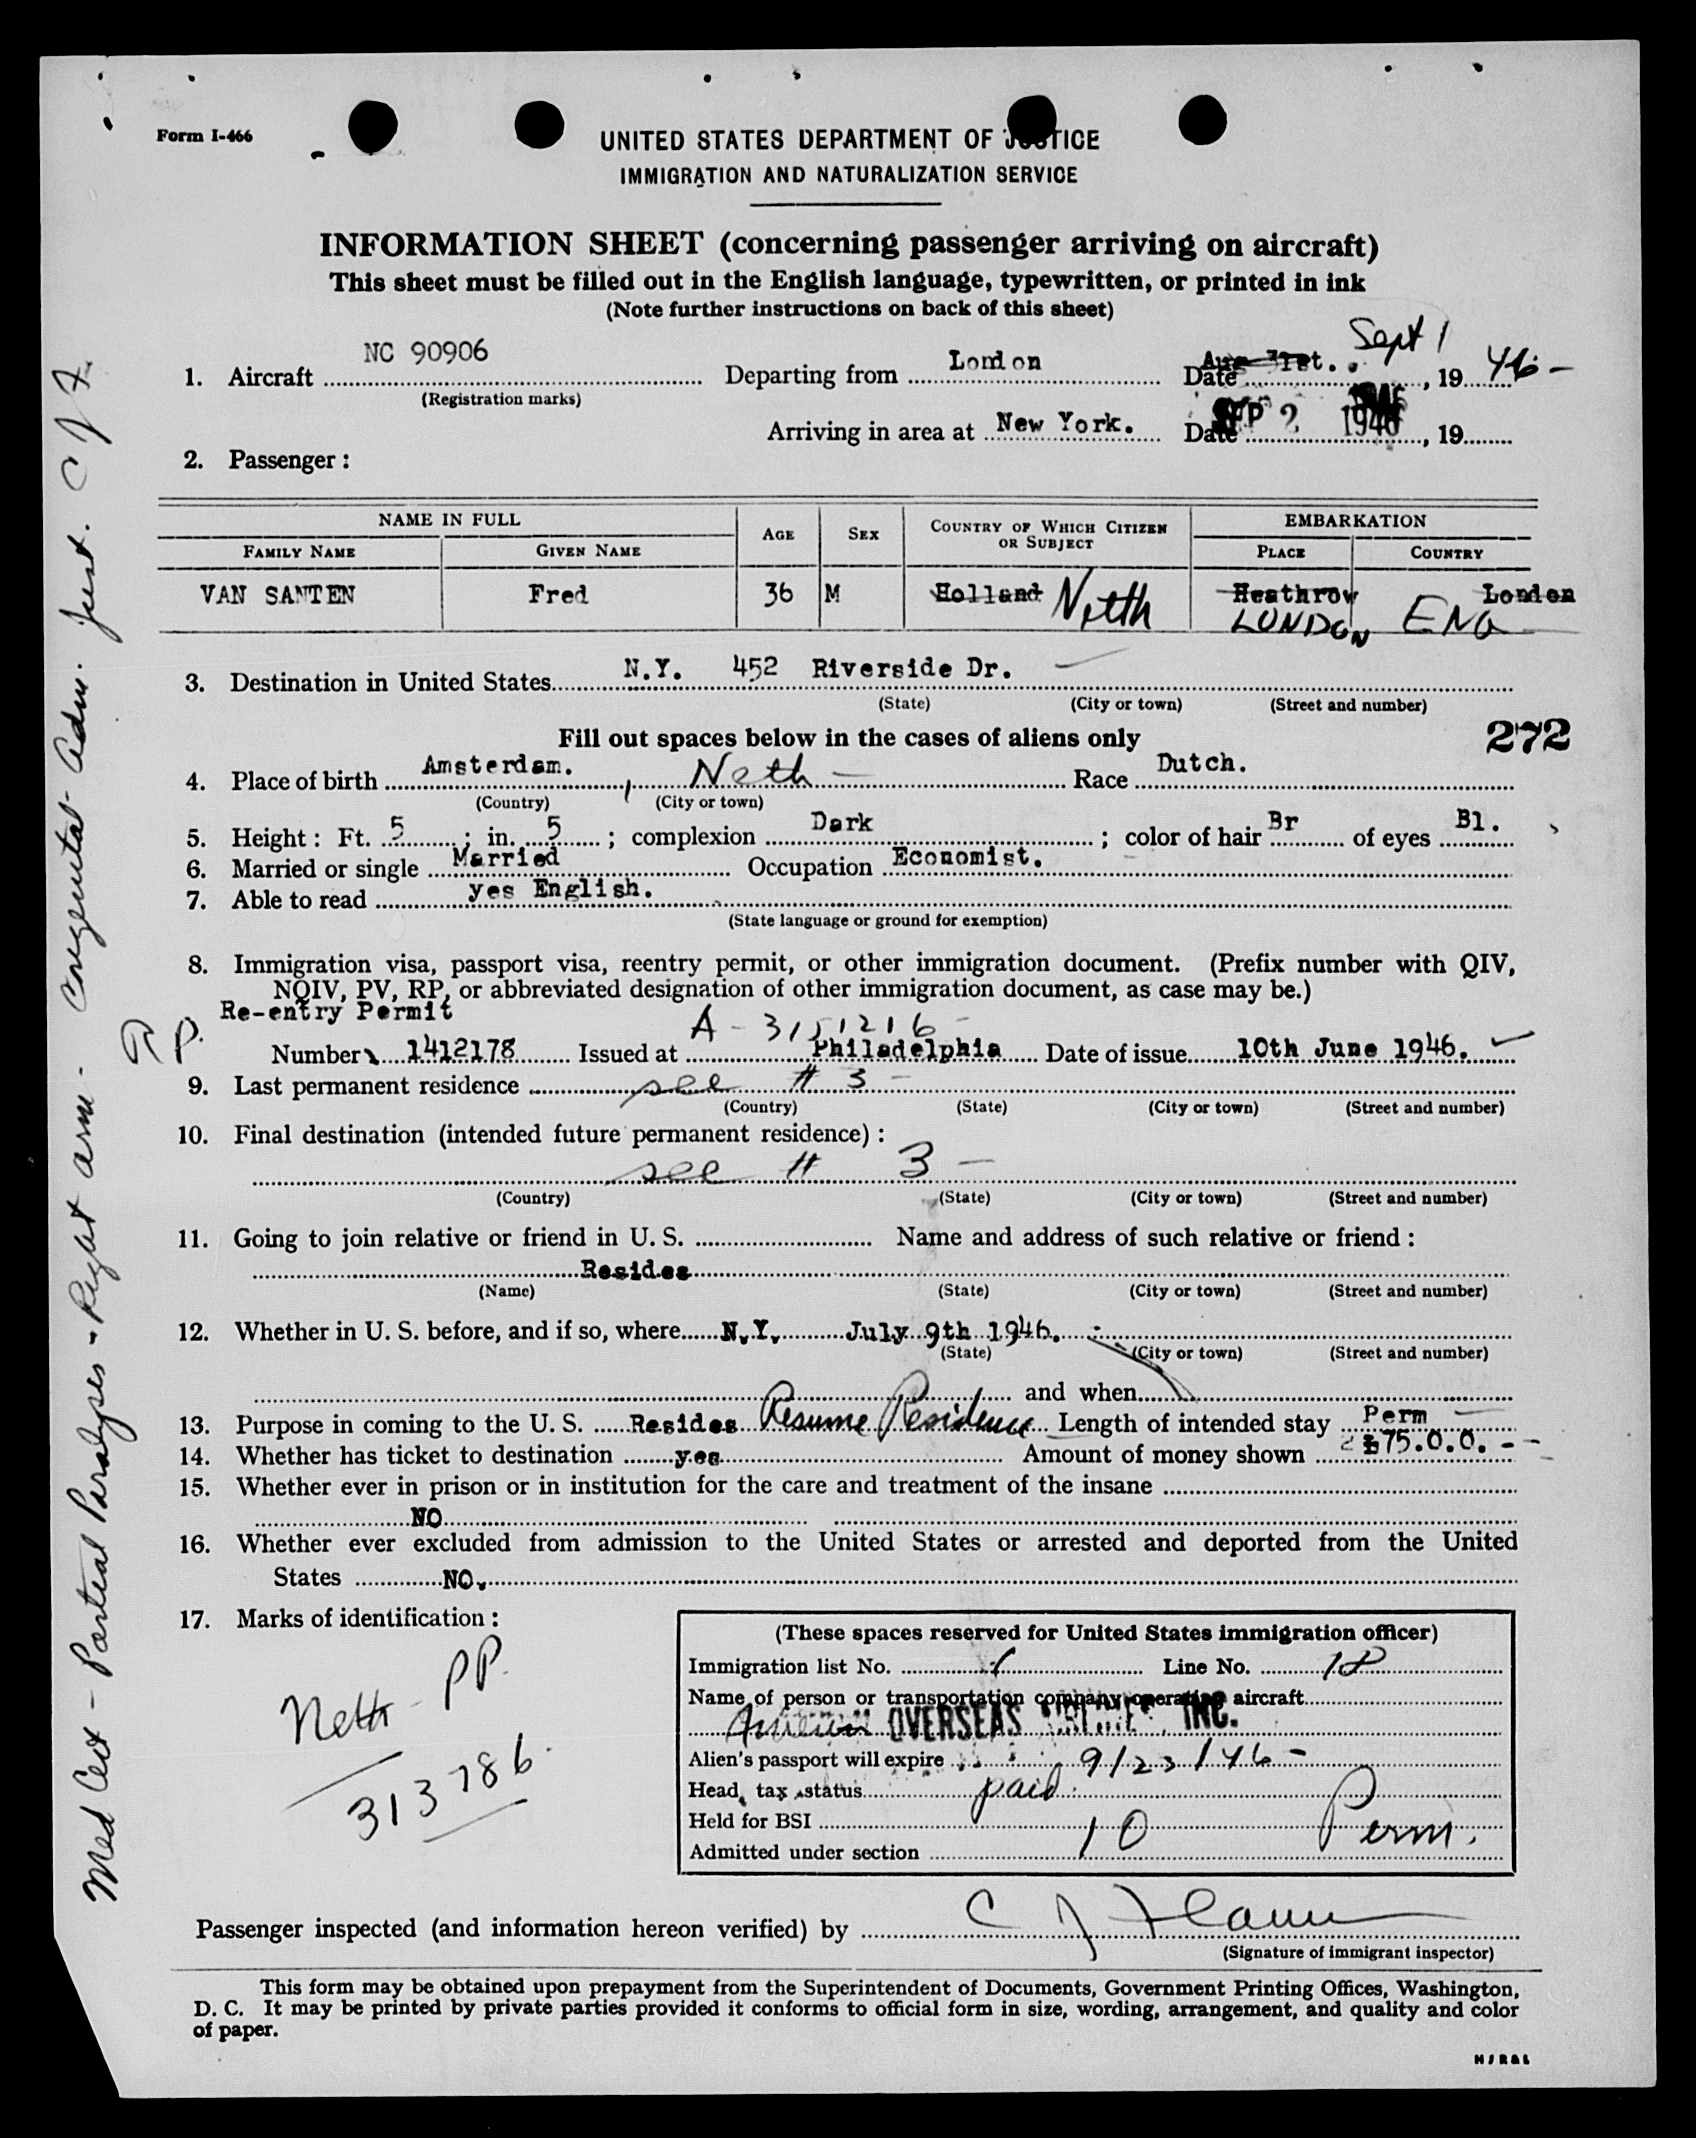 Form I-466
UNITED STATES DEPARTMENT OF JUSTICE
IMMIGRATION AND NATURALIZATION SERVICE
INFORMATION SHEET (concerning passenger arriving on aircraft)
This sheet must be filled out in the English language, typewritten, or printed in ink
(Note further instructions on back of this sheet)
1. Aircraft NC 90906 Departing from London Date Aug 31st. Sept 1, 19 46 -
(Registration marks)
Arriving in area at New York. Date SEP 2 1946, 19
2. Passenger :
NAME IN FULL AGE SEX COUNTRY OF WHICH CITIZEN OR SUBJECT EMBARKATION
FAMILY NAME GIVEN NAME PLACE COUNTRY
VAN SANTEN Fred 36 M Holland Neth Heathrow London
LONDON ENG
3. Destination in United States N.Y. 452 Riverside Dr.
(State) (City or town) (Street and number)
Fill out spaces below in the cases of aliens only 272
4. Place of birth Amsterdam. , Neth - Race Dutch.
(Country) (City or town)
5. Height : Ft. 5 ; in. 5 ; complexion Dark ; color of hair Br of eyes Bl.
6. Married or single Married Occupation Economist.
7. Able to read yes English.
(State language or ground for exemption)
8. Immigration visa, passport visa, reentry permit, or other immigration document. (Prefix number with QIV,
NQIV, PV, RP, or abbreviated designation of other immigration document, as case may be.)
Re-entry Permit
RP. A - 3151216 -
Number 1412178 Issued at Philadelphia Date of issue 10th June 1946.
9. Last permanent residence see # 3 -
(Country) (State) (City or town) (Street and number)
10. Final destination (intended future permanent residence) :
see # 3 -
(Country) (State) (City or town) (Street and number)
11. Going to join relative or friend in U. S. Name and address of such relative or friend :
Resides
(Name) (State) (City or town) (Street and number)
12. Whether in U. S. before, and if so, where N.Y. July 9th 1946.
(State) (City or town) (Street and number)
and when
13. Purpose in coming to the U. S. Resides Resume Residence Length of intended stay Perm
14. Whether has ticket to destination yes Amount of money shown £75.0.0. - -
15. Whether ever in prison or in institution for the care and treatment of the insane
NO
16. Whether ever excluded from admission to the United States or arrested and deported from the United
States NO.
17. Marks of identification :
Neth - PP.
313786.
(These spaces reserved for United States immigration officer)
Immigration list No. 1 Line No. 18
Name of person or transportation company operating aircraft
American OVERSEAS AIRLINES, INC.
Alien's passport will expire 9/23/46 -
Head tax status paid.
Held for BSI
Admitted under section 10 Perm.
Passenger inspected (and information hereon verified) by C J
(Signature of immigrant inspector)
This form may be obtained upon prepayment from the Superintendent of Documents, Government Printing Offices, Washington,
D. C. It may be printed by private parties provided it conforms to official form in size, wording, arrangement, and quality and color
of paper.
Med Cert - Partial Paralyses - Right arm - Congenital - adm. Just. C J F.